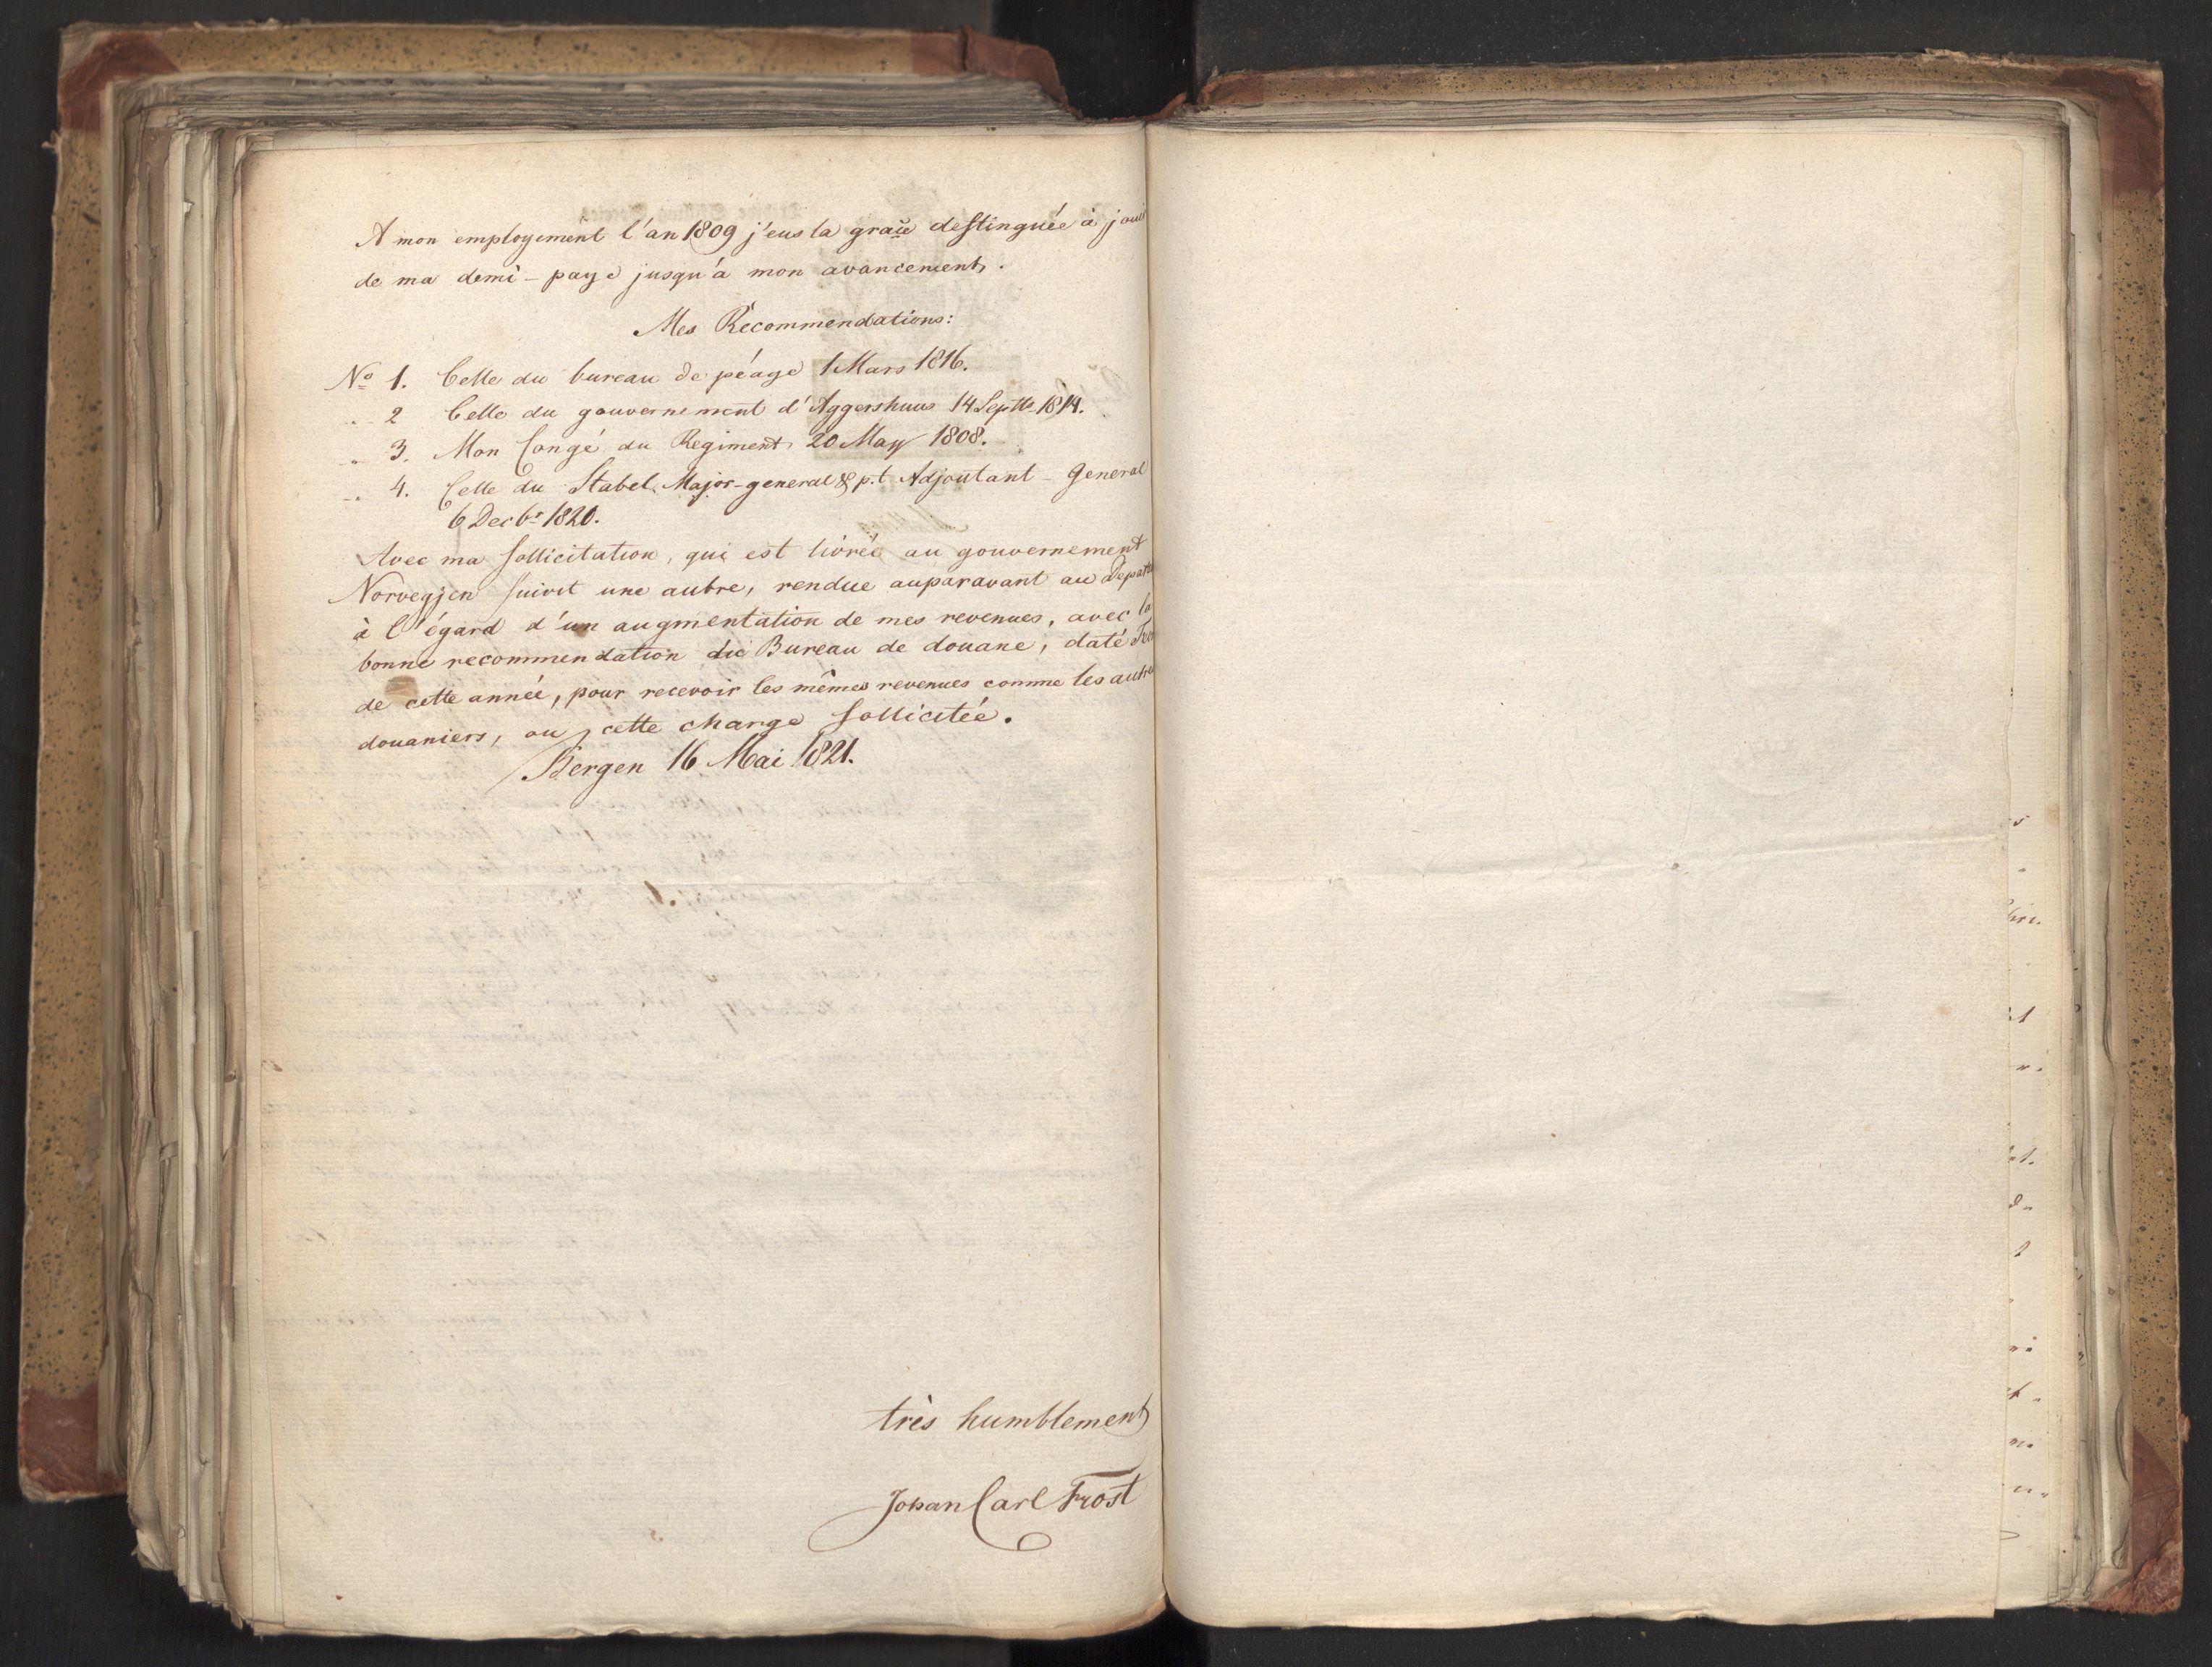 A mon employement l'an 1809 j'eus la grace destinguée à jouir
de ma demi-paye jusqu'à mon avancement.
Mes Recommendations:
No 1. Celle du bureau de péage 1 Mars 1816.
" 2 Celle du gouvernement d'Aggershuus 14 Septbr 1814.
" 3. Mon Congé du Regiment 20 May 1808.
" 4. Celle du Stabel, Major-general & p.t Adjoutant-General
6 Decbr 1820.
Avec ma sollicitation, qui est livrée au gouvernement
Norvegjen suivit une autre, rendue auparavant au
à l'égard d'un augmentation de mes revenues, avec la
bonne recommendation du Bureau de douane, daté
de cette année, pour recevoir les mêmes revenues comme les autres
douaniers, ou cette charge sollicitée.
Bergen 16 Mai 1821.
très humblement
Johan Carl Frost